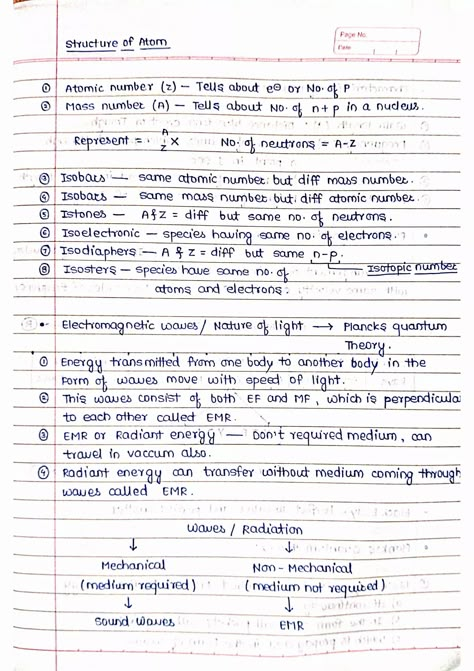 Structure of Atom
Page No.
Date
① Atomic number (z) – Tells about e⊖ or No. of P
② Mass number (A) – Tells about No. of n+p in a nucleus.
Represent = A/Z X No. of neutrons = A-Z
③ Isobars — same atomic number but diff mass number.
④ Isobars – same mass number but diff atomic number.
⑤ Istones – A & Z = diff but same no. of neutrons.
⑥ Isoelectronic – species having same no. of electrons.
⑦ Isodiaphers – A & Z = diff but same n-p.
⑧ Isosters – species have same no. of Isotopic number
atoms and electrons.
Electromagnetic waves / Nature of light → Plancks quantum
Theory.
① Energy transmitted from one body to another body in the
form of waves move with speed of light.
② This waves consist of both EF and MF, which is perpendicula
to each other called EMR.
③ EMR or Radiant energy — Don't required medium, can
travel in vaccum also.
④ Radiant energy can transfer without medium coming through
waves called EMR.
Waves / Radiation
↓ ↓
Mechanical Non-Mechanical
(medium required) (medium not required)
↓ ↓
Sound Waves EMR